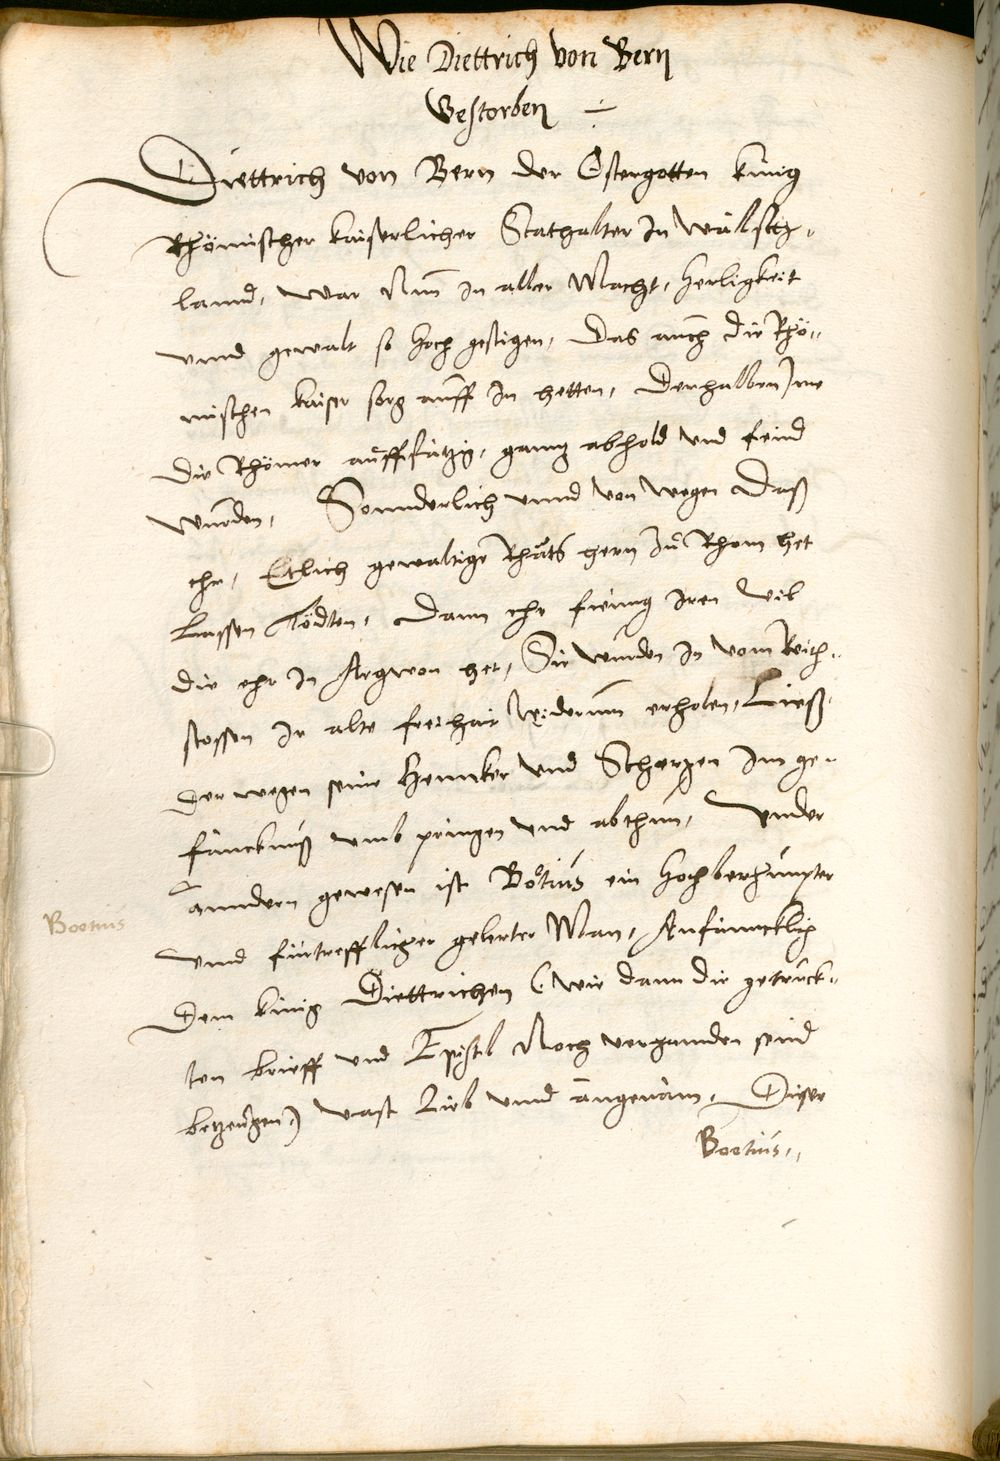 Wie Diettrich von Bern
Gestorben ÷
Diettrich von Bern der Ostergotten künig
Rhömischer kaiserlicher Stathalter in wälsch„
lannd, war Nun in aller Macht, herligkeit
vnnd gewalt so hoch gestigen, Das auch die Rhö„
mischen kaiser sorg auff in hetten, Derhalben jme
die Rhömer auffsätzig, gantz abhold vnd feind
wurden, Sonnderlich vnnd von wegen Daß
ehr, Etlich gewaltige Rhäts hern zu Rhom het
Lassen Tödten, Dann ehr fieng iren vil
die ehr in Argwon het, Sie würden in vom Reich„
stossen ir alte freihait widerumb erholen, Ließ
der wegen seine Hencker vnd Schergen im ge„
fäncknuß vmb pringen vnd abthun, Vnder
anndern gewesen ist Boetius ein hochberhümpter
Boetius
vnnd fürtrefflicher gelerter Man, Anfäncklich
Dem künig Diettrichen (wie dann die getruck„
ten brieff vnd Epistel Noch verhannden seind
betzeugen) vast Lieb vnnd angenäm, Diser
Boetius„